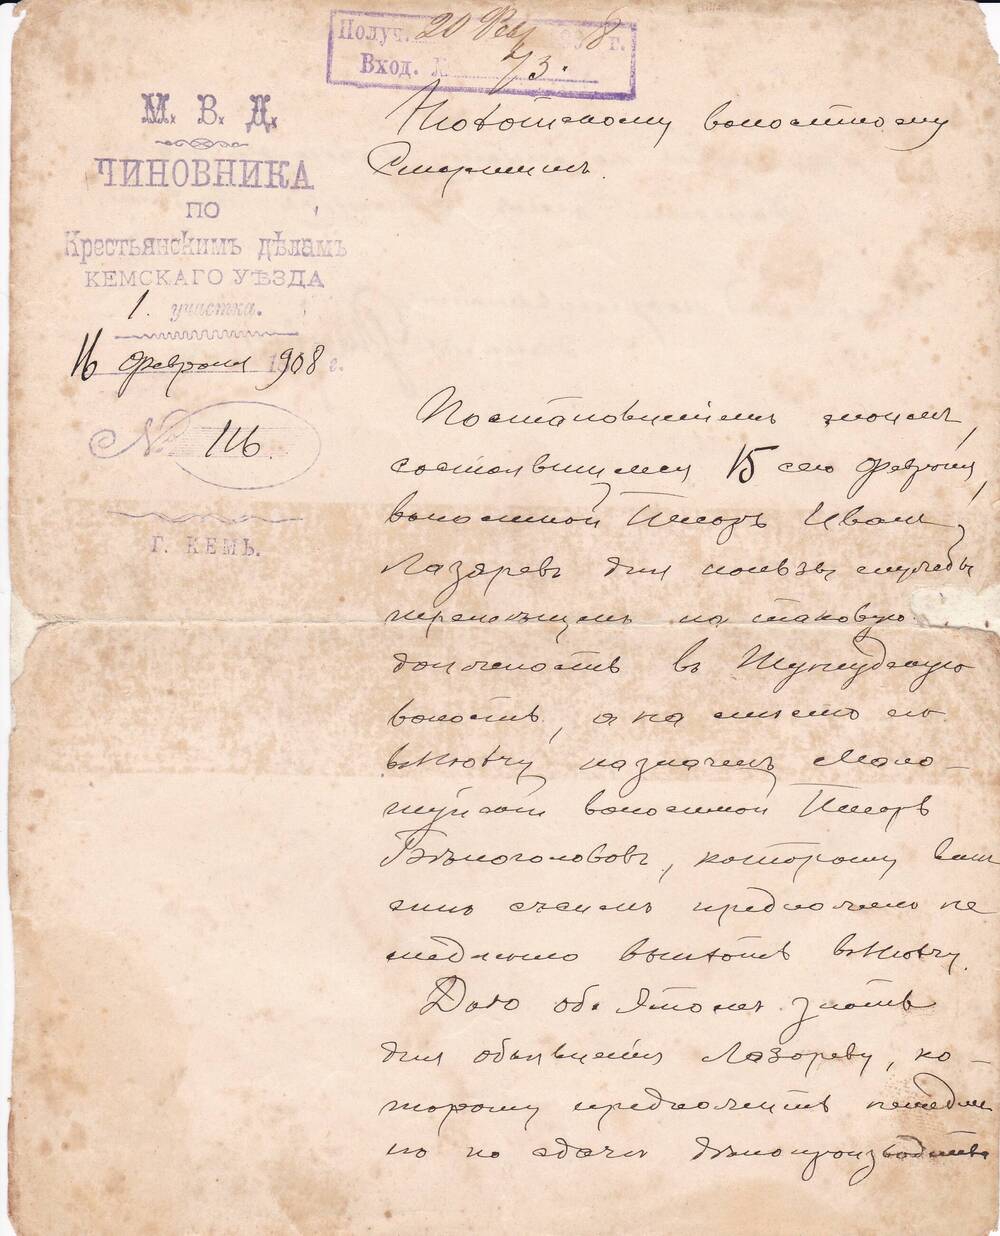 Получ. 20 Фев 1908 г.
Вход. № 73.
М. В. Д.
ЧИНОВНИКА
ПО
Крестьянскимъ дѣламъ
КЕМСКАГО УѢЗДА
1. участка.
16 февраля 1908 г.
№ 116.
Г. КЕМЬ.
Нюхотскому волостному
Старшинѣ.
Постановленіемъ моимъ,
состоявшимся 15 сего февраля,
волостной Писарь Иванъ
Лазаревъ для пользы службы
перемѣщенъ на таковую
должность въ Шуньгскую
волость, а на мѣсто его
въ Нюхчу назначенъ Мало-
шуйскій волостной Писарь
Бѣлоголововъ, которому
съ симъ предложено не
медленно выѣхать въ Нюхчу.
Даю объ этомъ знать
для объявленія Лазареву, ко-
торому предложить немедлен
но по сдачи дѣлопроизводства